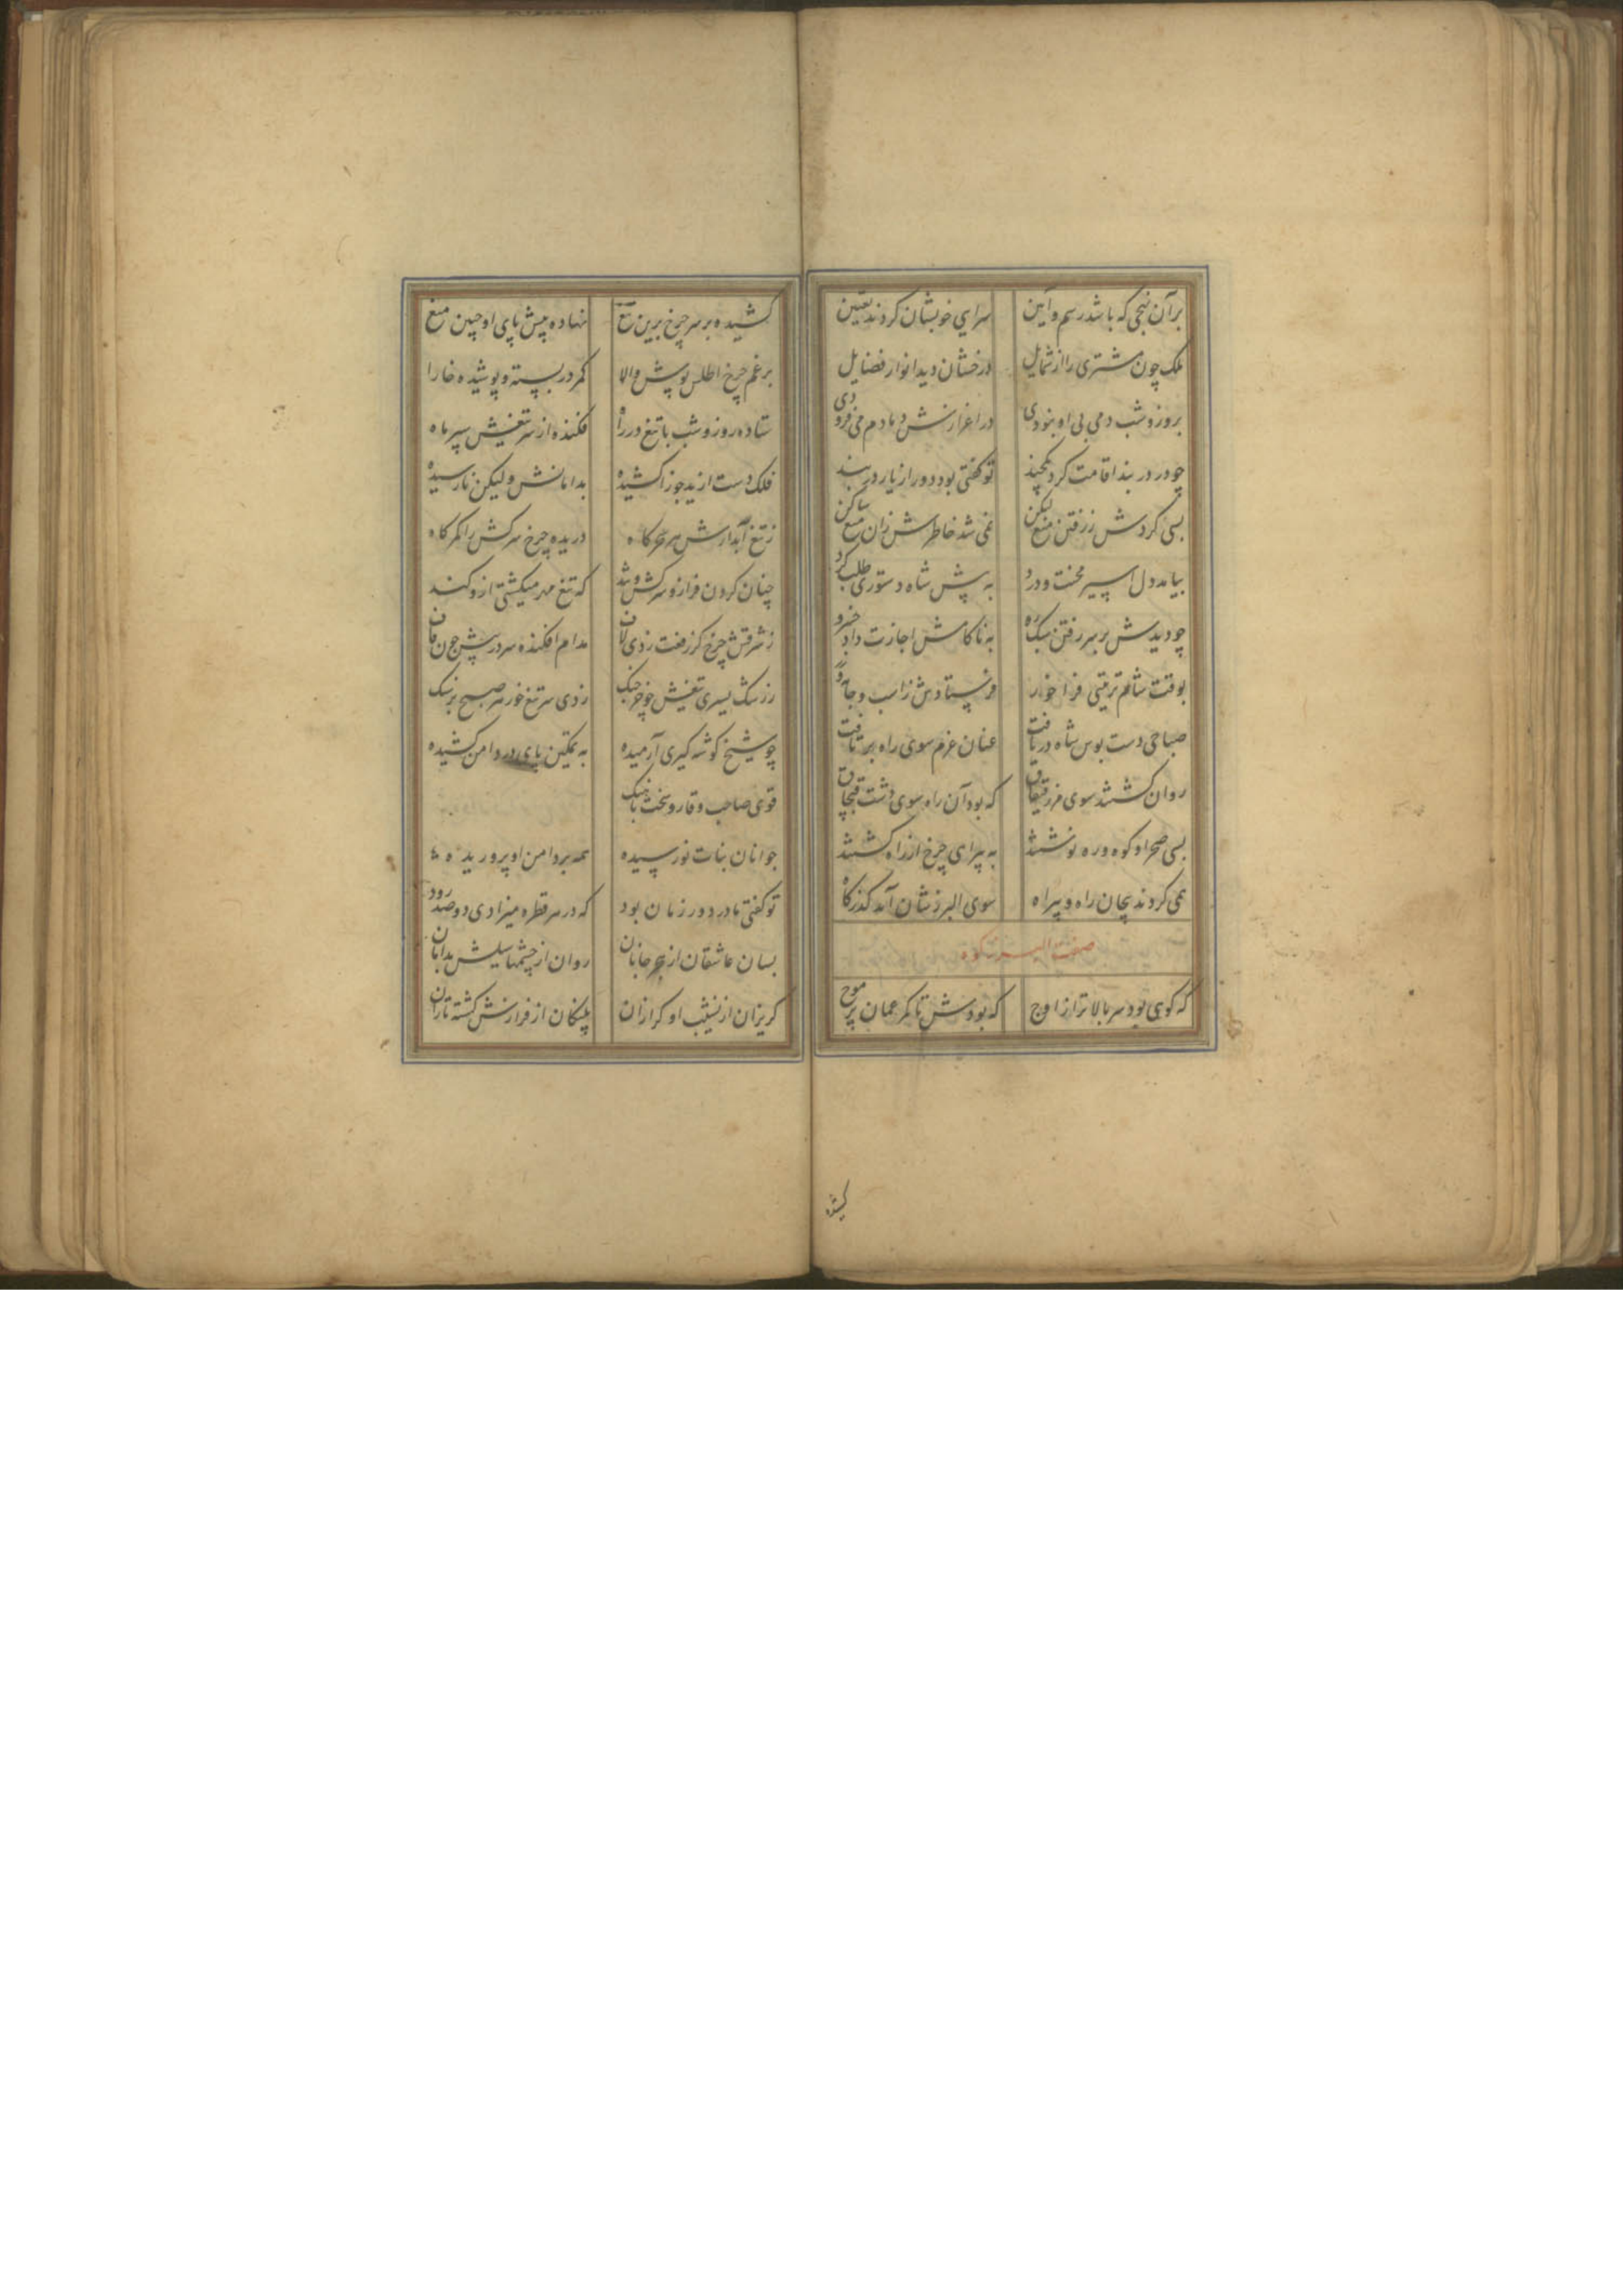 برآن نهجی که باشد رسم و آیین سرایی خوبشان کردند تعیین
ملک چون مشتری را از شمایل درخشان دید انوار فضایل
بروز و شب دمی بی او نبودی در اعزازش دمادم می‌فزودی
چو در دربند اقامت کرد یکچند تو گفتی بود دور از یار دربند
بسی کردش ز رفتن منع لیکن نمی شد خاطرش زان منع ساکن
بیامد دل اسیر محنت و درد به پیش شاه دستوری طلب کرد
چو دیدش بر سر رفتن سبک رو به ناکامش اجازت داد خسرو
بوقت شام ترتیبی فراخور فرستادش ز اسب و جامه و
صباحی دست بوس شاه دریافت عنان عزم سوی راه بر تافت
روان گشتند سوی که بود آن راه سوی دشت قبچاق
بسی صحرا و کوه و ره نوشتند به پیرای چرخ از راه گشتند
همی کردند پیچان راه و بیراه سوی البرزشان آمد گذرگاه
صفت البرز کوه
که کوهی بود سر بالاتر از اوج که بودش تا کمر عمان پر موج
کشیده
کشیده بر سر چرخ برین تیغ نهاده پیش پای او جبین میغ
برغم چرخ اطلس پوش والا کمر در بسته و پوشیده خارا
ستاده روز و شب با تیغ در راه فکنده از سر تیغش سپر ماه
فلک دست از ید جوزا کشیده بدامانش ولیکن نارسیده
ز تیغ آبدارش هر سحرگاه دریده چرخ سرکش را کمرگاه
چنان گردن فراز و سرکش و تند که تیغ مهر میگشتی ازو کند
ز شرقش چرخ کز رفعت زدی لاف مدام افکنده سر در پیش چون قاف
ز سنگ تیغش چو خرچنگ زدی سر تیغ خور هر صبح بر سنگ
چو شیخ گوشه گیری آرمیده به تمکین پای در دامن کشیده
قوی صاحب وقار و سخت با هنگ
جوانان بنات نورسیده همه بر دامن او پروریده
تو گفتی مادر دور زمان بود که در هر قطره میزادی دو صد رود
بسان عاشقان از هجر جانان روان از چشمها سیلش بدامان
گریزان از نشیب او گرازان پلنگان از فرازش گشته تازان